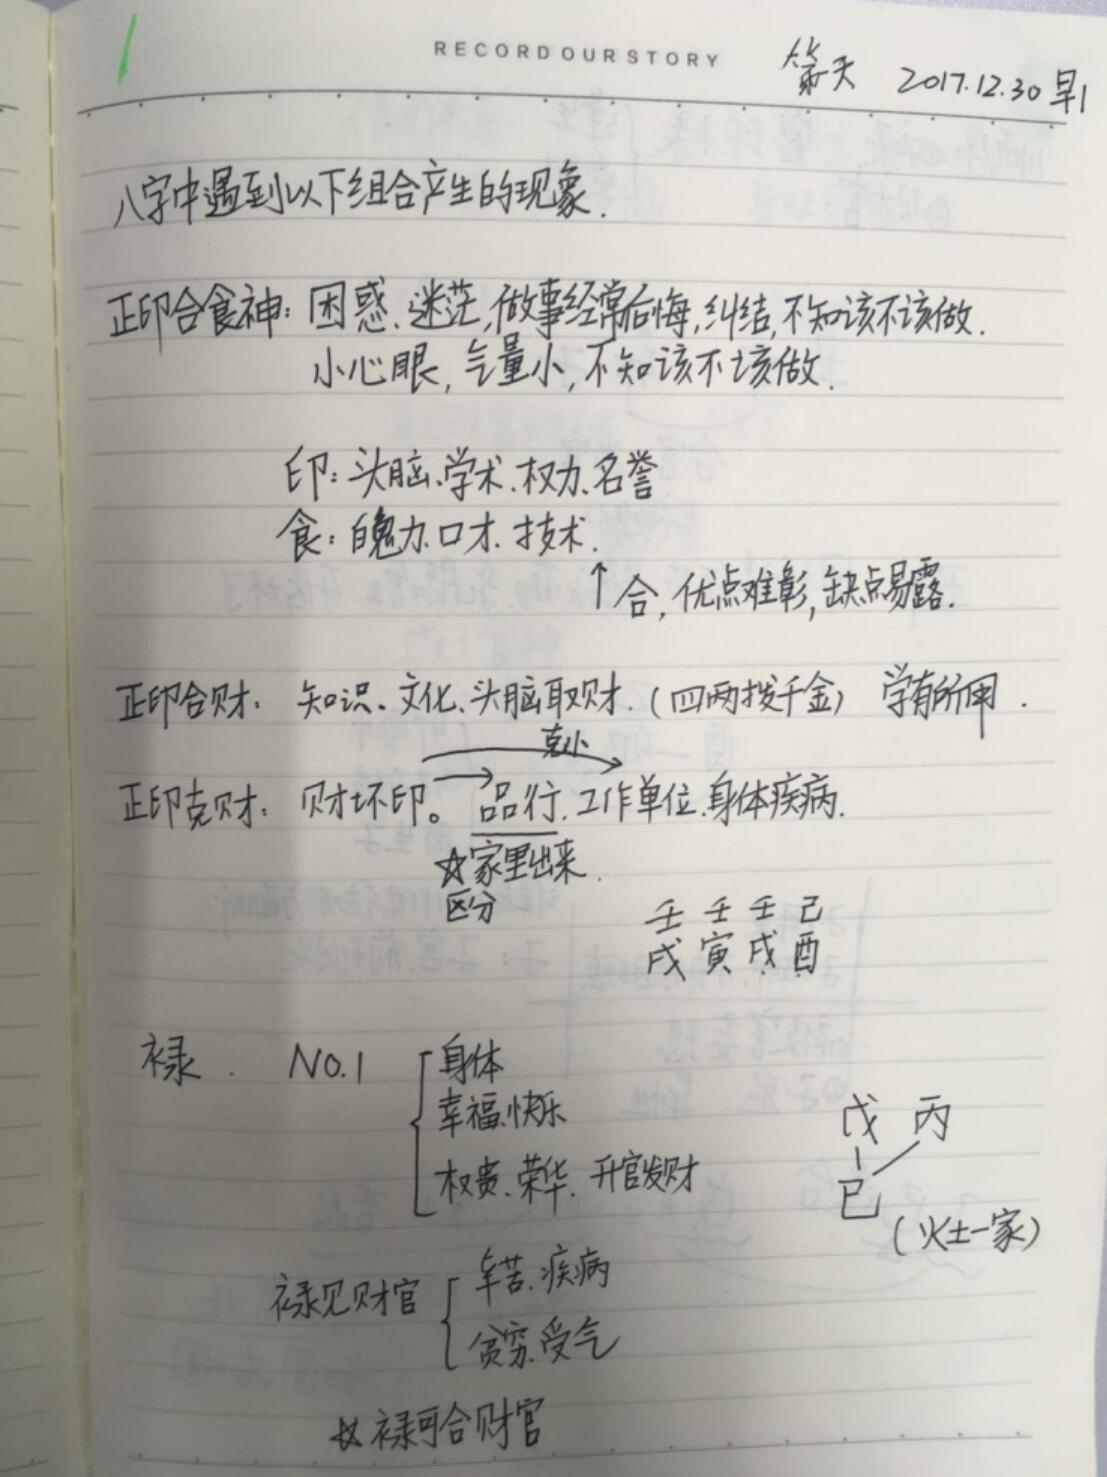 RECORD OUR STORY
第六天 2017.12.30 早1
八字中遇到以下组合产生的现象.
正印合食神: 困惑、迷茫,做事经常后悔,纠结,不知该不该做.
小心眼,气量小,不知该不该做.
印: 头脑、学术、权力、名誉
食: 魄力、口才、技术.
↑合,优点难彰,缺点易露.
正印合财: 知识、文化、头脑取财.(四两拨千金) 学有所用.
克小
正印克财: 财坏印。 品行、工作单位、身体疾病.
☆家里出来.
区分
壬 壬 壬 己
戌 寅 戌 酉
禄. NO.1 身体
幸福、快乐
权贵、荣华、升官发财
戊 丙
巳
(火土一家)
禄见财官 辛苦、疾病
贫穷、受气
☆禄可合财官